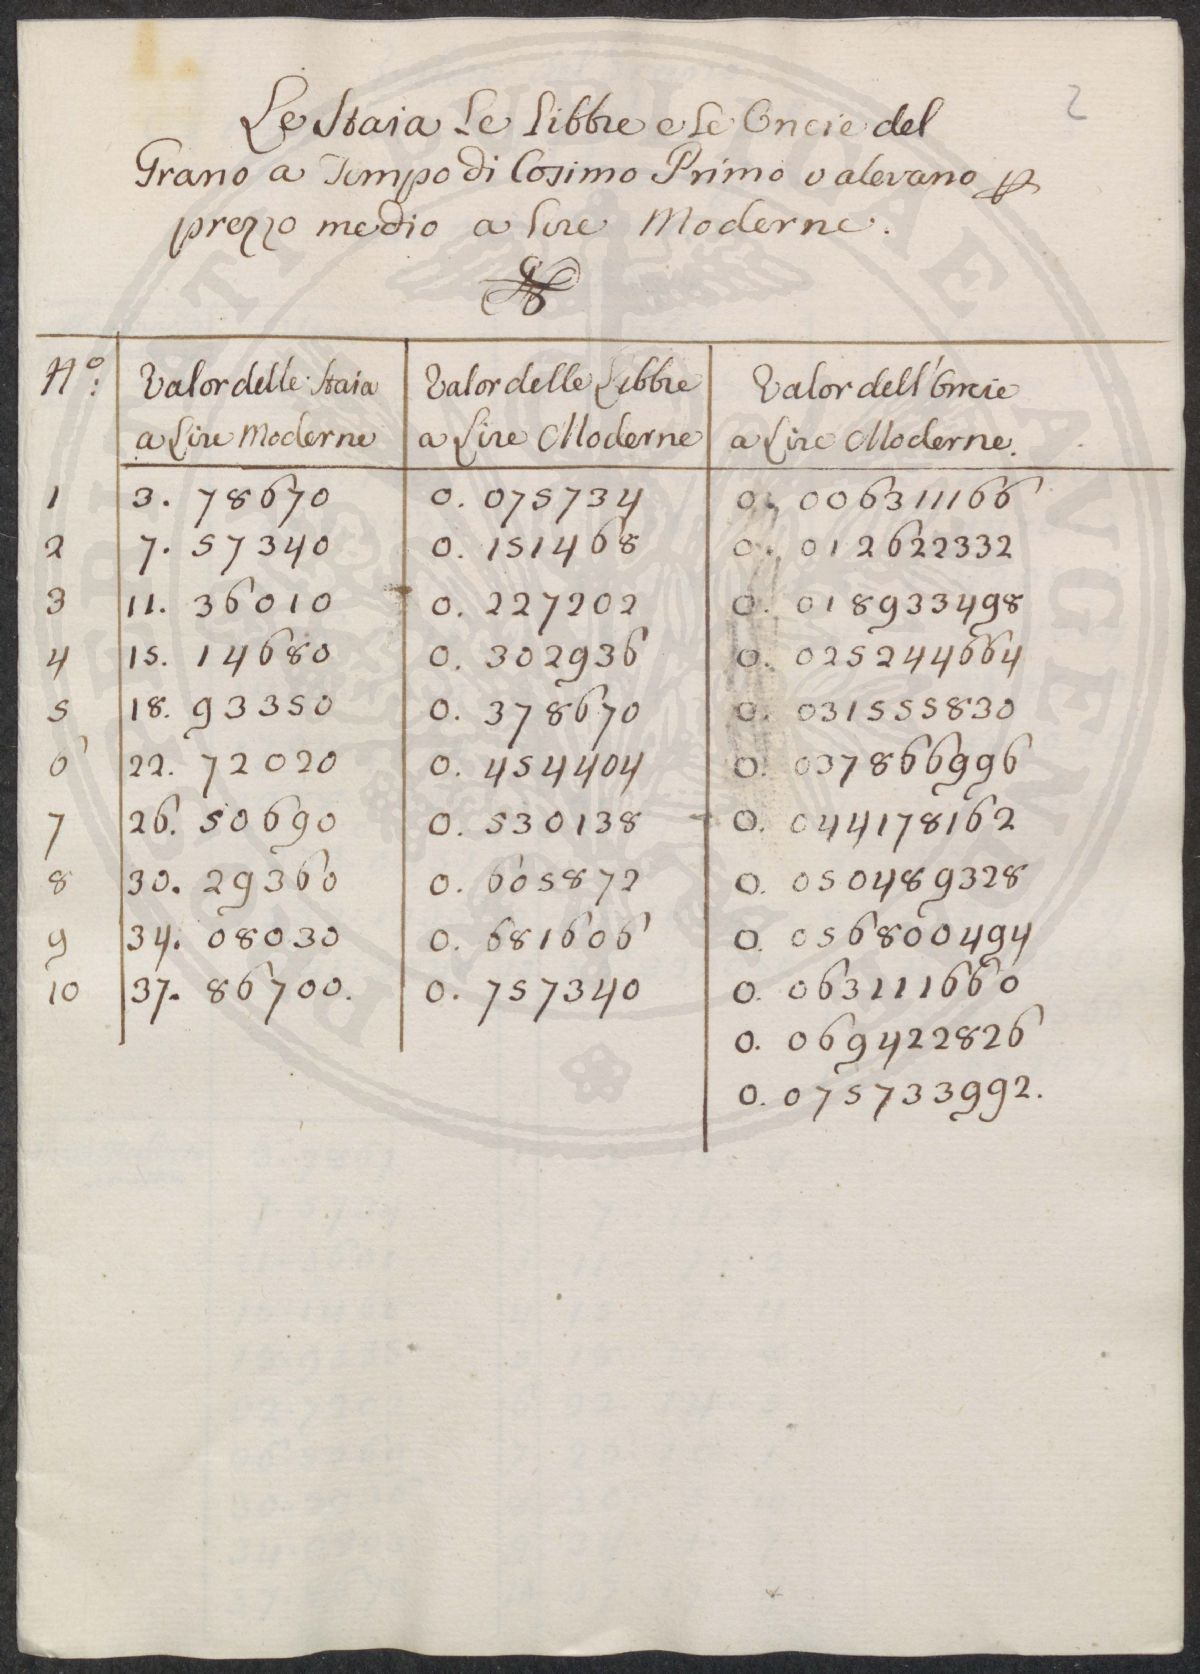 2
Le Staia Le Libbre e Le Oncie del
Grano a Tempo di Cosimo Primo valevano p
prezzo medio a Lire Moderne.
N.º Valor delle Staia Valor delle Libbre Valor dell'Oncie
a Lire Moderne a Lire Moderne a Lire Moderne.
1 3. 78670 0. 075734 0. 006311166
2 7. 57340 0. 151468 0. 012622332
3 11. 36010 0. 227202 0. 018933498
4 15. 14680 0. 302936 0. 025244664
5 18. 93350 0. 378670 0. 031555830
6 22. 72020 0. 454404 0. 037866996
7 26. 50690 0. 530138 0. 044178162
8 30. 29360 0. 605872 0. 050489328
9 34. 08030 0. 681606 0. 056800494
10 37. 86700. 0. 757340 0. 063111660
0. 069422826
0. 075733992.